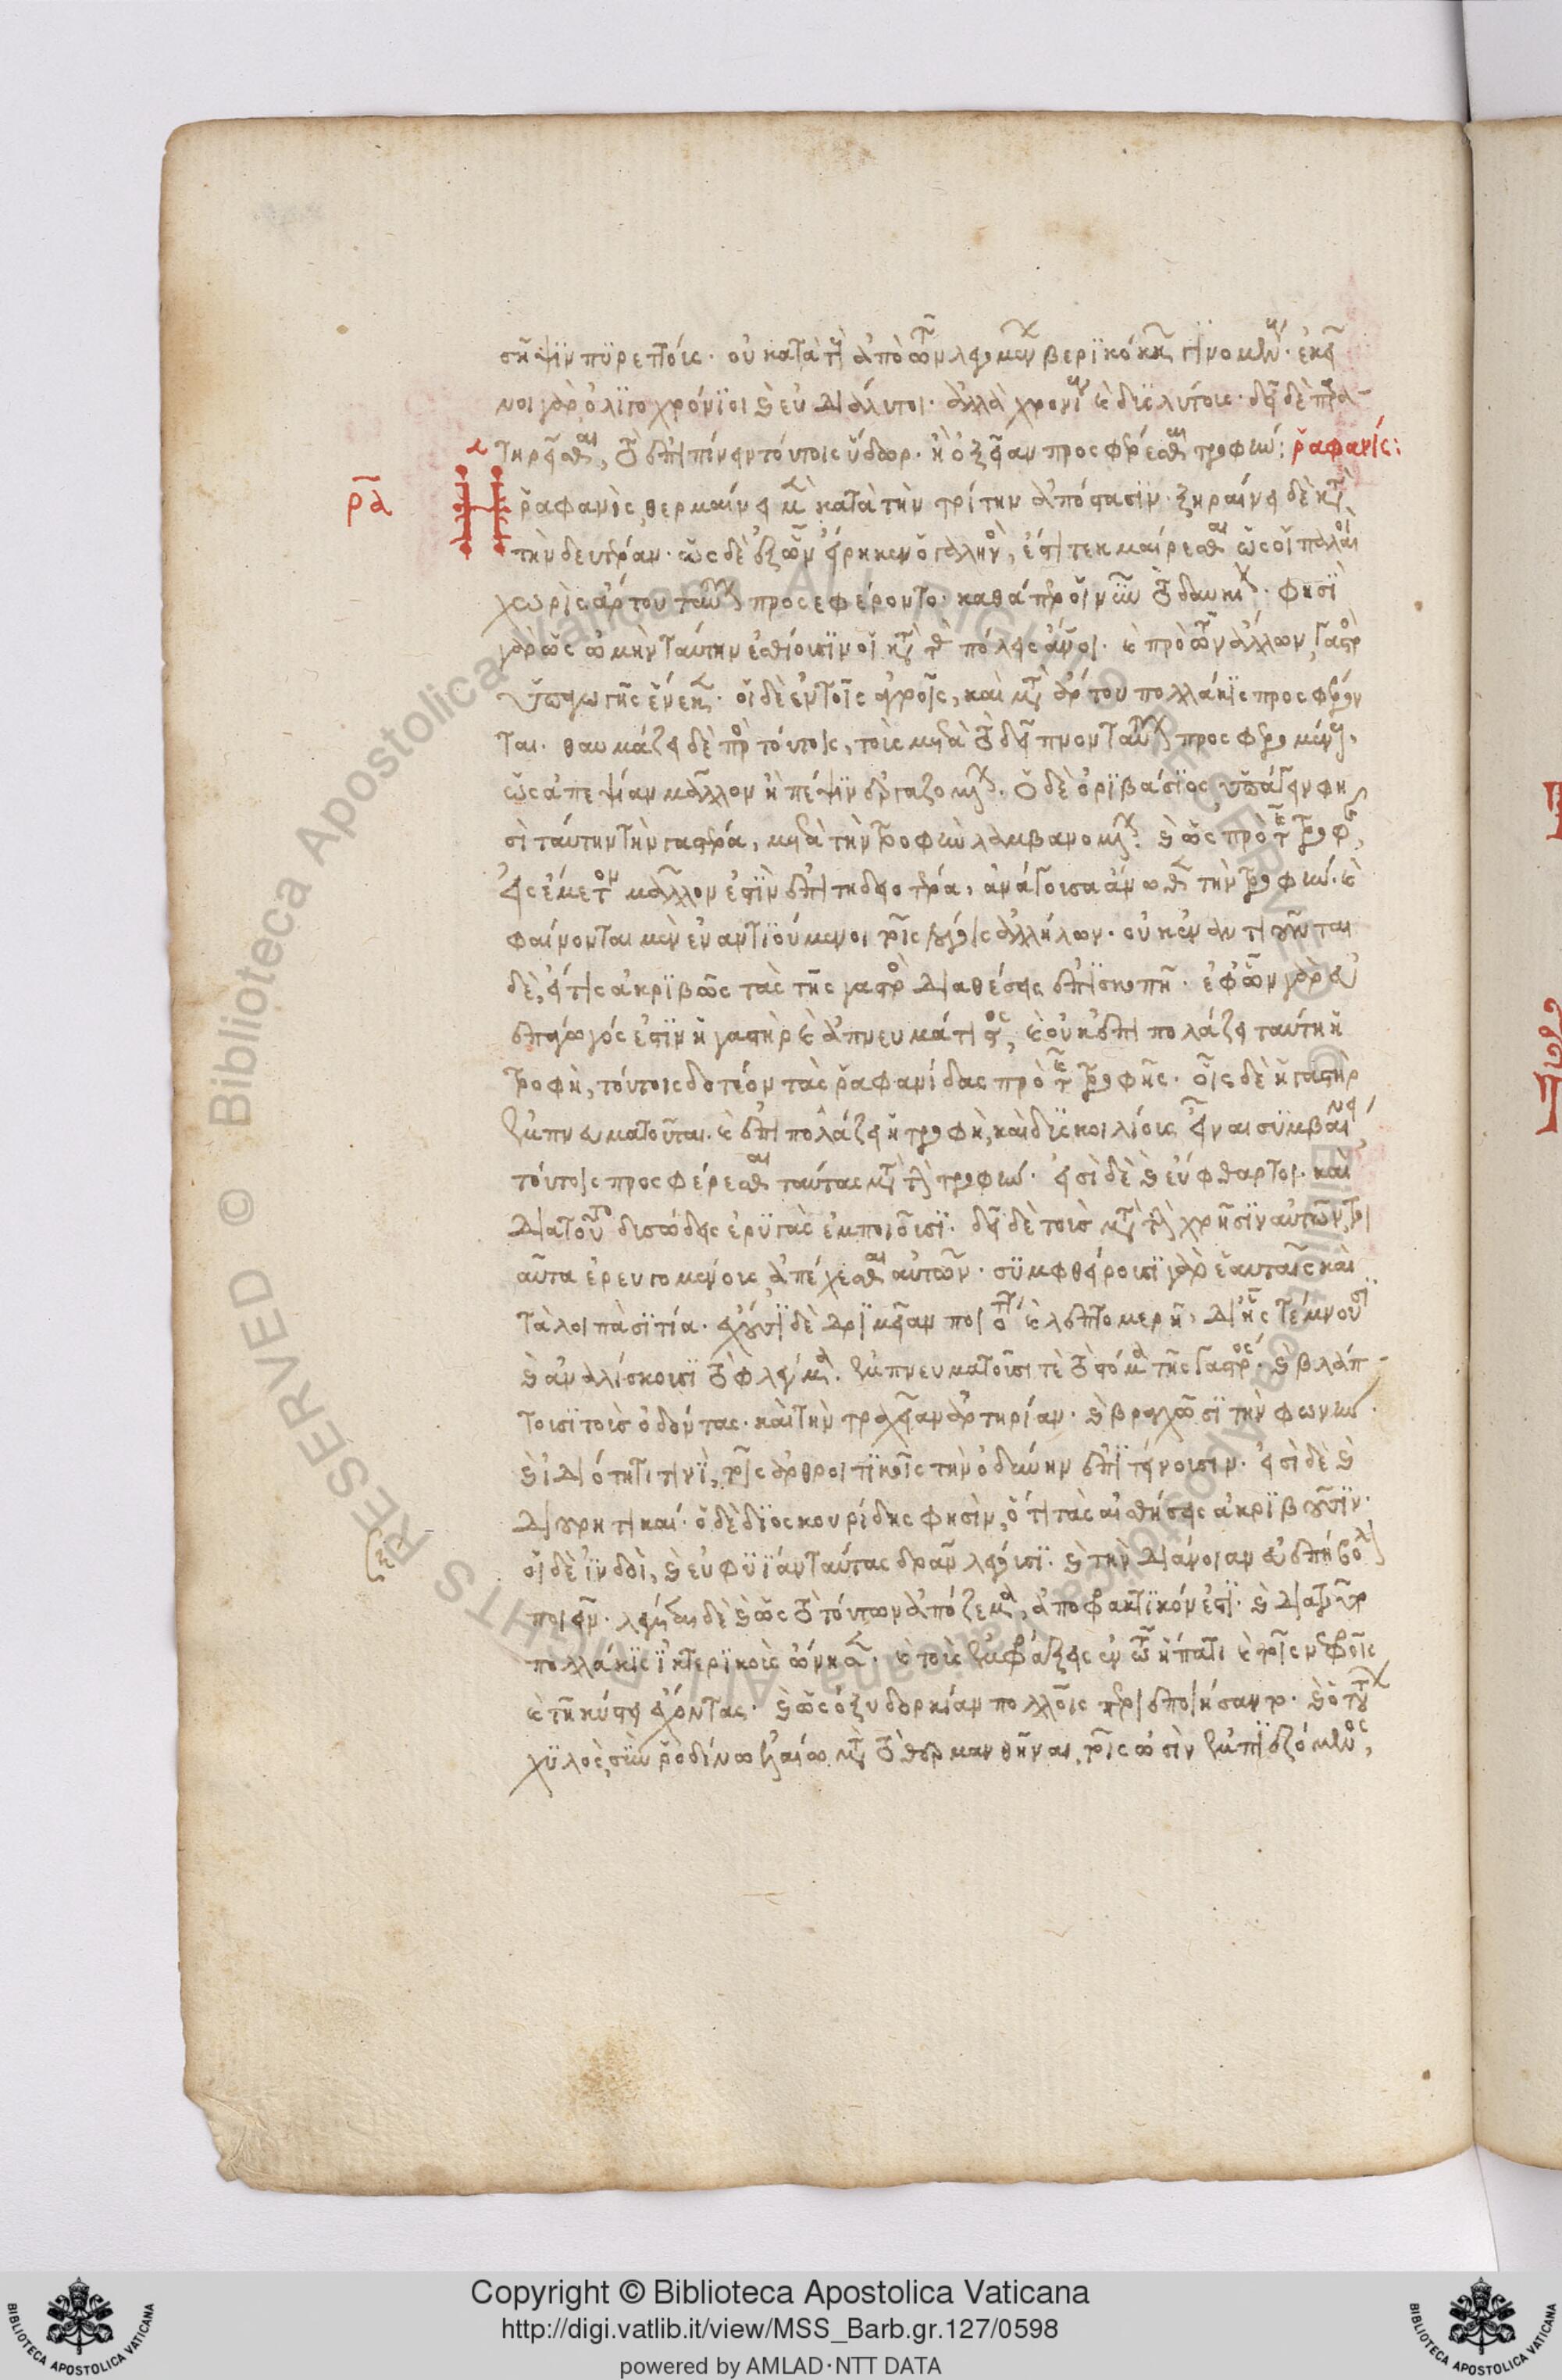 σῆψιν πυρετοῖς· οὐ κατὰ τοὺς ἀπὸ τῶν λεγομένων βερικόκκων γινομένους· ἐκεῖ
νοι γὰρ ὀλιγοχρόνιοι καὶ εὐδιάλυτοι· ἀλλὰ χρονίους καὶ δυσλύτοις· δεῖ δὲ παρα
τηρεῖσθαι, τὸ ἐπιπίνειν τούτοις ὕδωρ· ἢ ὀξεῖαν προσφέρεσθαι τροφήν: ῥαφανίς:
ρᾱδ
Ἡ ῥαφανὶς, θερμαίνει μὲν κατὰ τὴν τρίτην ἀπόστασιν· ξηραίνει δὲ κατὰ
τὴν δευτέραν· ὡς δὲ ἐξ ὧν εἴρηκεν ὁ γαληνὸς, ἔστι τεκμαίρεσθαι ὡς οἱ παλαιοὶ
χωρὶς ἄρτου ταύτην προσεφέροντο· καθάπερ οἱ νῦν τὸ δαυκὶν· φησὶ
γὰρ ὡς ὠμὴν ταύτην ἐσθίουσιν οἱ κατὰ τὰς πόλεις ἄνθρωποι· καὶ πρὸ τῶν ἄλλων, γαστρὸς
ὑπαγωγῆς ἕνεκα· οἱ δὲ ἐν τοῖς ἀγροῖς, καὶ μετὰ ἄρτου πολλάκις προσφέρον
ται· θαυμάζει δὲ πρὸς τούτοις, τοῖς μετὰ τὸ δεῖπνον ταύτην προσφερομένοις,
ὡς ἀπεψίαν μᾶλλον ἢ πέψιν ἐργαζομένην· ὁ δὲ ὀριβάσιος, ὑπάγειν φη
σὶ ταύτην τὴν γαστέρα, μετὰ τὴν τροφὴν λαμβανομένην· καὶ ὡς πρὸ τῆς τροφῆς,
εἰς ἔμετον μᾶλλον ἐστὶν ἐπιτηδειοτέρα, ἀνάγουσα ἄνωθεν τὴν τροφήν· καὶ
φαίνονται μὲν ἐναντιούμενοι τοῖς λόγοις ἀλλήλων· οὐκ ἐναντιοῦνται
δὲ, εἴ τις ἀκριβῶς τὰς τῆς γαστρὸς διαθέσεις ἐπισκοπῇ· ἐφ' ὧν γὰρ εὐ
επάγωγός ἐστιν ἡ γαστὴρ καὶ ἀπνευμάτιστος, καὶ οὐκ ἐπιπολάζει ταύτη ἡ
τροφὴ, τούτοις δοτέον τὰς ῥαφανίδας πρὸ τῆς τροφῆς· οἷς δὲ ἡ γαστὴρ
ἐμπνευματοῦται· καὶ ἐπιπολάζει ἡ τροφὴ, καὶ δυσκοιλίοις εἶναι συμβαίνει,
τούτοις προσφέρεσθαι ταύτας μετὰ τὴν τροφήν· εἰσὶ δὲ καὶ εὔφθαρτοι· καὶ
διὰ τοῦτο δυσώδεις ἐρυγὰς ἐμποιοῦσι· δεῖ δὲ τοὺς μετὰ τὴν χρῆσιν αὐτῶν τοι
αῦτα ἐρευγομένους, ἀπέχεσθαι αὐτῶν· συμφθείρουσι γὰρ ἑαυταῖς καὶ
τὰ λοιπὰ σιτία· ἔχουσι δὲ δριμεῖαν ποιότητα καὶ λεπτομερῆ, δι' ἧς τέμνουσι
καὶ ἀναλίσκουσι τὸ φλέγμα· ἐμπνευματοῦσι τὲ τὸ στόμα τῆς γαστρὸς· καὶ βλάπ
τουσι τοὺς ὀδόντας· καὶ τὴν τραχεῖαν ἀρτηρίαν· καὶ βραγχῶσι τὴν φωνήν·
καὶ ἰδιότητι τινὶ, τοῖς ἀρθριτικοῖς τὴν ὀδύνην ἐπιτείνουσιν· εἰσὶ δὲ καὶ
διουρητικαί· ὁ δὲ διοσκουρίδης φησὶν, ὅτι τὰς αἰσθήσεις ἀκριβοῦσιν·
οἱ δὲ ἰνδοὶ, καὶ εὐφυΐαν ταύτας δρᾶν λέγουσι· καὶ τὴν διάνοιαν εὐεπήβολον
ποιεῖν· λέγεται δὲ καὶ ὡς τὸ τούτων ἀπόζεμα, ἀποφρακτικόν ἐστι· καὶ διὰ τοῦτο
πολλάκις ἰκτερικοὺς ὤνησεν· καὶ τοὺς ἐμφράξεις ἐν τῷ ἥπατι καὶ τοῖς νεφροῖς
καὶ τῆ κύστει ἔχοντας· καὶ ὡς ὀξυδορκίαν πολλοῖς περιεποιήσαντο· καὶ ὁ τούτων
χυλὸς, σὺν ῥοδίνω ἐλαίω μετὰ τὸ θερμανθῆναι, τοῖς ὠσὶν ἐμπιεζόμενος,